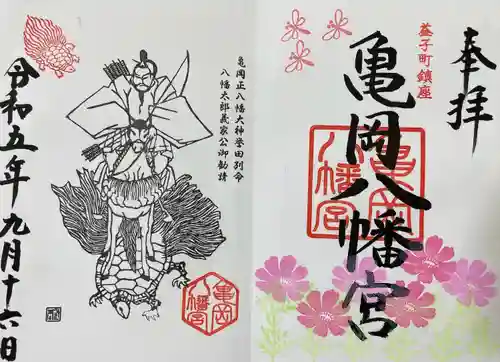 奉拝
益子町鎮座
亀岡八幡宮
亀岡
八幡宮
亀岡正八幡大神誉田別命
八幡太郎義家公御勧請
亀岡
八幡宮
令和五年九月十六日